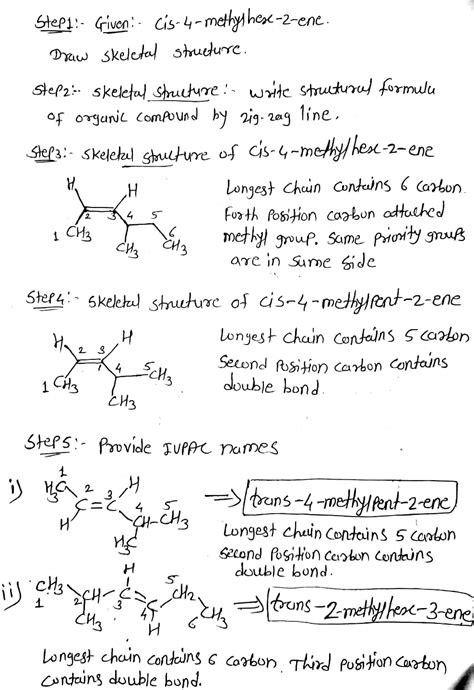 Step1:- Given:- Cis-4-methylhex-2-ene.
Draw skeletal structure.
Step2:- Skeletal structure:- write structural formula
of organic compound by zig-zag line.
Step3:- Skeletal structure of Cis-4-methylhex-2-ene
H
H
2
3
4
5
6
1 CH3
CH3
CH3
Longest chain contains 6 carbon.
Forth position carbon attached
methyl group. Same priority groups
are in Same Side
Step4:- Skeletal structure of cis-4-methylpent-2-ene
H
2
3
H
4
5
CH3
1 CH3
CH3
Longest chain contains 5 carbon
Second Position carbon contains
double bond.
Step5:- Provide IUPAC names
i)
1
H3C
2
3
H
C=C
H
4
5
CH-CH3
H3C
⇒ trans-4-methylpent-2-ene
Longest chain contains 5 carbon
Second Position carbon contains
double bond.
ii)
CH3
1
2
CH
CH3
H
C
3
=
C
4
H
5
CH2
CH3
6
⇒ trans-2-methylhex-3-ene
Longest chain contains 6 carbon. Third position carbon
contains double bond.